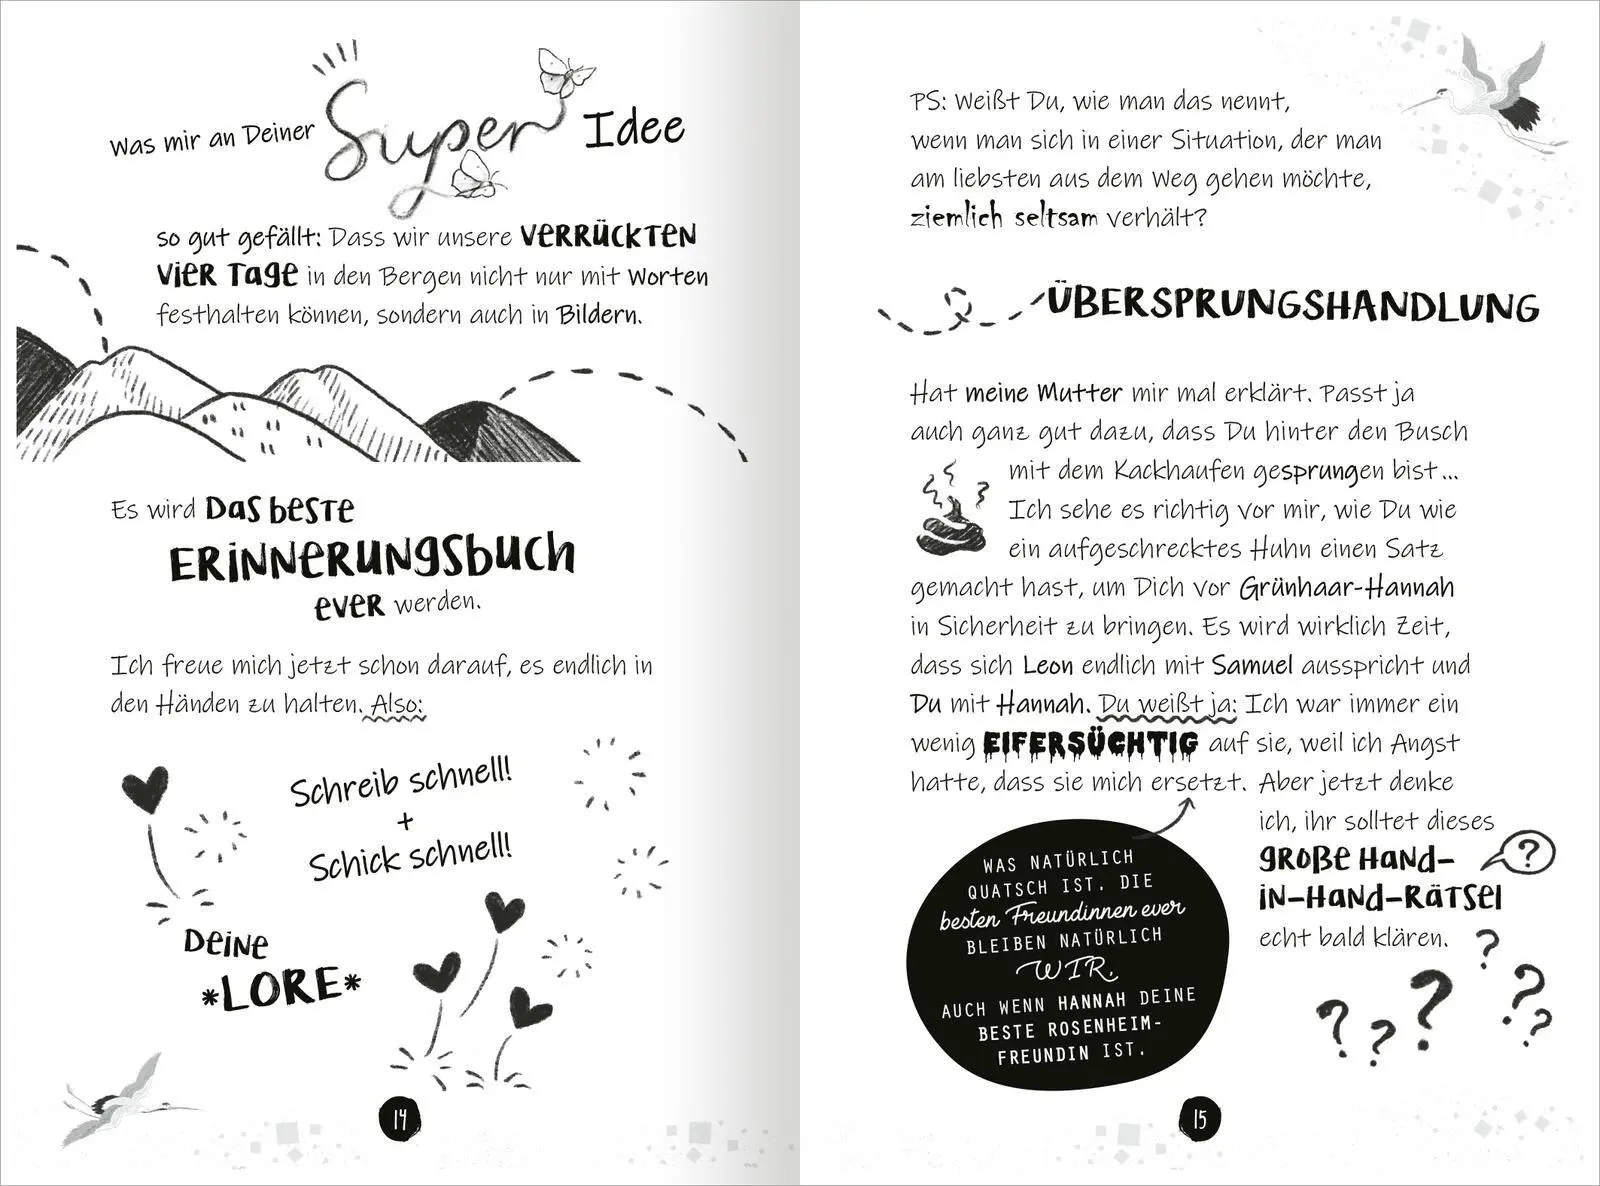 Was mir an Deiner Super Idee
so gut gefällt: Dass wir unsere VERRÜCKTEN
VIER TAGE in den Bergen nicht nur mit Worten
festhalten können, sondern auch in Bildern.
Es wird Das beste
ERINNERUNGSBUCH
EVER werden.
Ich freue mich jetzt schon darauf, es endlich in
den Händen zu halten. Also:
Schreib schnell!
+
Schick schnell!
DEINE
*LORE*
14
PS: Weißt Du, wie man das nennt,
wenn man sich in einer Situation, der man
am liebsten aus dem Weg gehen möchte,
ziemlich seltsam verhält?
ÜBERSPRUNGSHANDLUNG
Hat meine Mutter mir mal erklärt. Passt ja
auch ganz gut dazu, dass Du hinter den Busch
mit dem Kackhaufen gesprungen bist ...
Ich sehe es richtig vor mir, wie Du wie
ein aufgeschrecktes Huhn einen Satz
gemacht hast, um Dich vor Grünhaar-Hannah
in Sicherheit zu bringen. Es wird wirklich Zeit,
dass sich Leon endlich mit Samuel ausspricht und
Du mit Hannah. Du weißt ja: Ich war immer ein
wenig EIFERSÜCHTIG auf sie, weil ich Angst
hatte, dass sie mich ersetzt. Aber jetzt denke
ich, ihr solltet dieses
GROßE HAND-
IN-HAND-RÄTSEL
echt bald klären.
?
? ? ? ? ? ?
WAS NATÜRLICH
QUATSCH IST. DIE
besten Freundinnen ever
BLEIBEN NATÜRLICH
WIR.
AUCH WENN HANNAH DEINE
BESTE ROSENHEIM-
FREUNDIN IST.
15